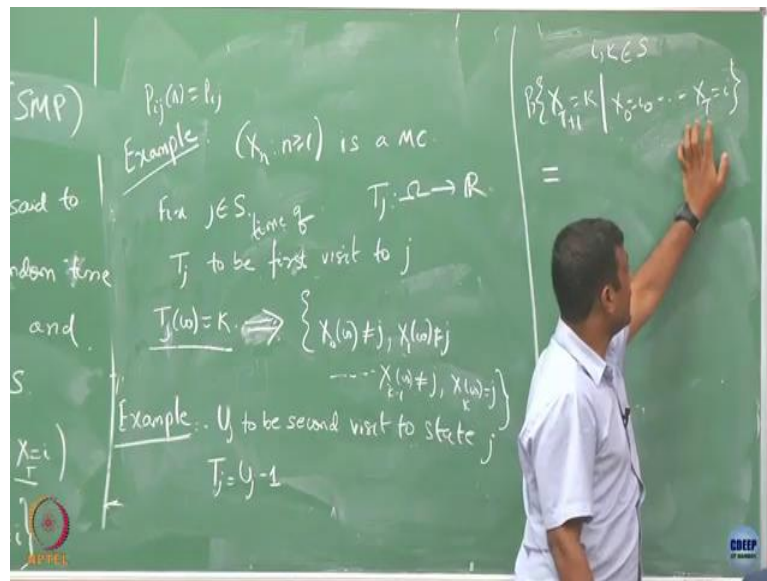 SMP)
said to
random time
and
S.
X_T=i)
i}
P_ij(n)=P_ij
Example: (X_n: n≥1) is a MC.
Fix j∈S. T_j: Ω→ℝ
time of
T_j to be first visit to j
T_j(ω)=K ⟹ {X_0(ω)≠j, X_1(ω)≠j
---- X_{k-1}(ω)≠j, X_k(ω)=j}
Example: U_j to be second visit to state j
T_j=U_j-1
i,k∈S
P{X_{T+1}=K | X_0=i_0 --- X_T=i}
=
NPTEL
CDEEP
IIT BOMBAY